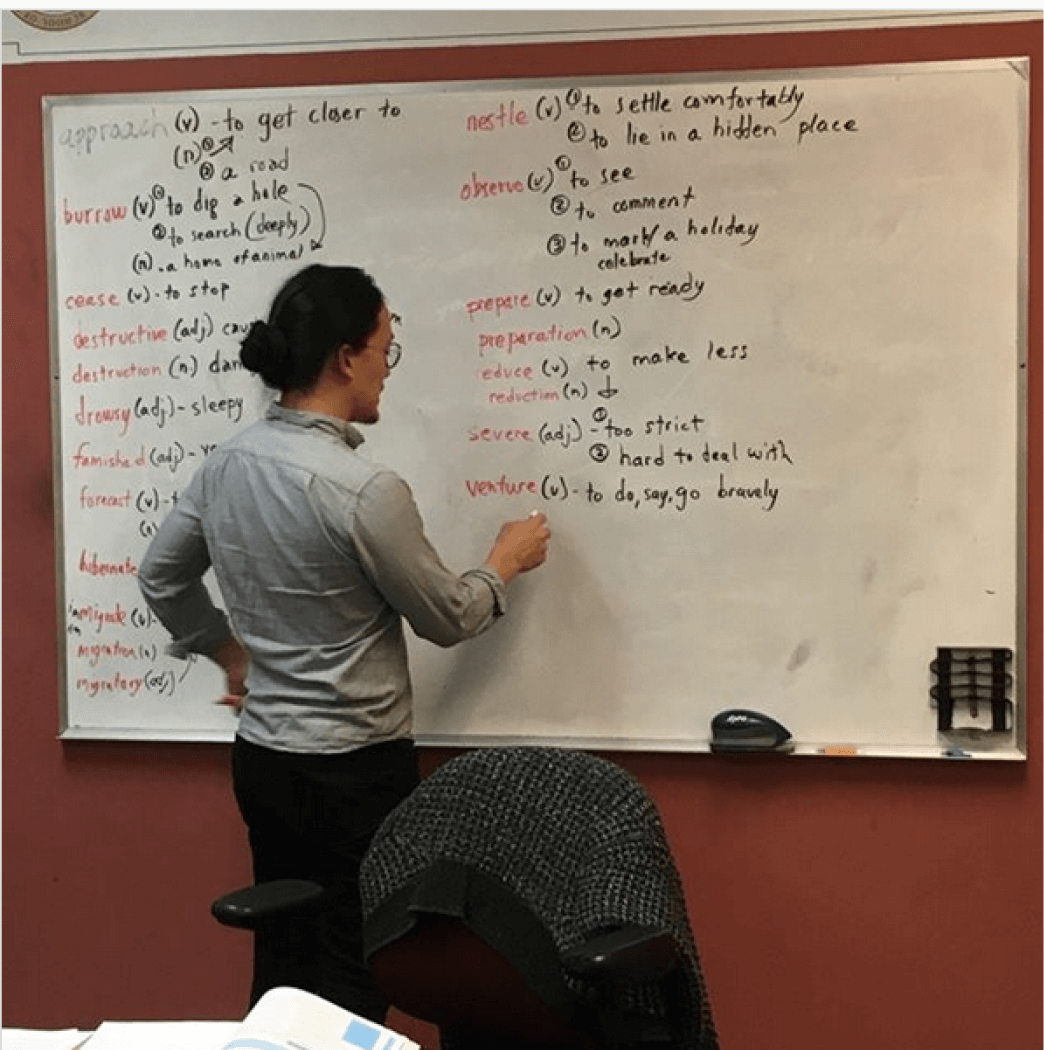 approach (v) - to get closer to
(n) ① ↗
② a road
burrow (v) ① to dig a hole
② to search (deeply)
(n) . a home of animal
cease (v) - to stop
destructive (adj)
destruction (n)
drowsy (adj) - sleepy
famished (adj) -
forecast (v) -
(n)
hibernate
im
em
migrate (v) -
migration (n)
migratory (adj)
nestle (v) ① to settle comfortably
② to lie in a hidden place
observe (v) ① to see
② to comment
③ to mark/a holiday
celebrate
prepare (v) to get ready
preparation (n)
reduce (v) to make less
reduction (n) ↓
severe (adj) - ① too strict
② hard to deal with
venture (v) - to do, say, go bravely